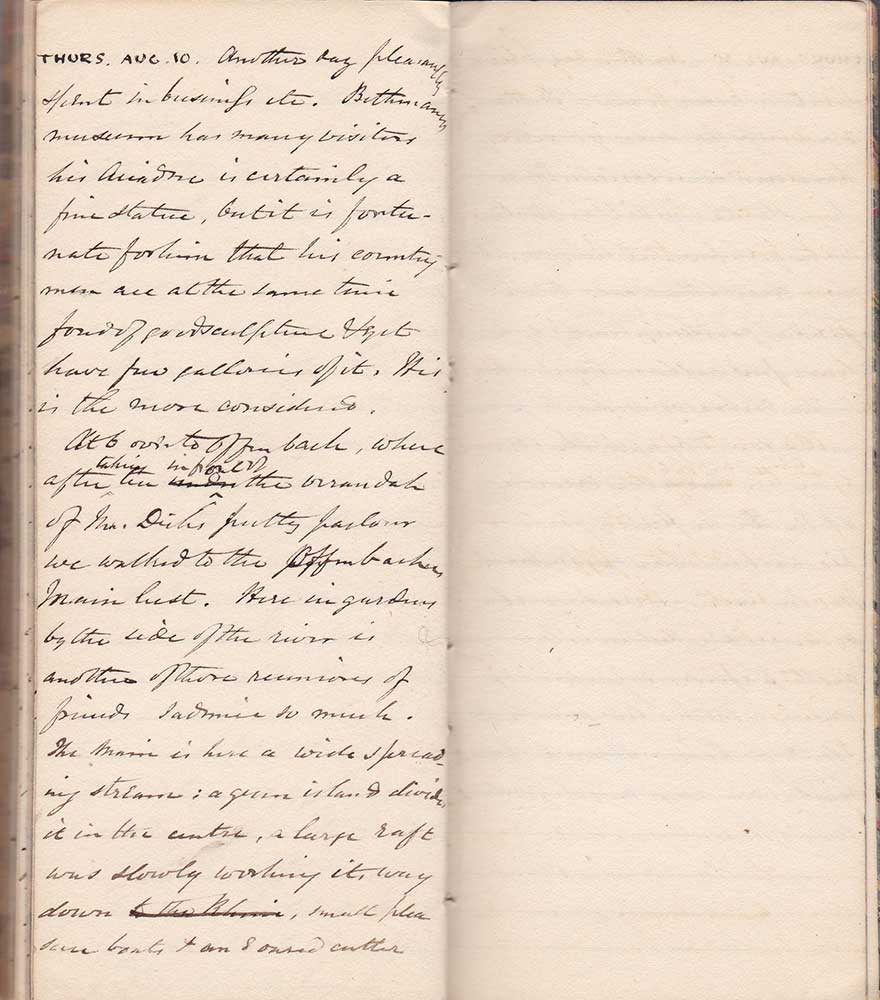 THURS. AUG. 10. Another day pleasantly
spent in business etc. Bethmann's
museum has many visitors
his Ariadne is certainly a
fine statue, but it is fortu-
nate for him that his country
men are at the same time
fond of good sculpture & yet
have few galleries of it. His
is the more considered.
At 6 over to Offenbach, where
taking in front of
after tea under the verandah
of Mr. Dick's pretty parlour
we walked to the Offenbachers
Main lust. Here in gardens
by the side of the river is
another of those reunions of
friends I admire so much.
The Main is here a wide spread-
ing stream: a green island divides
it in the centre, a large raft
was slowly working its way
down to the Rhine, small plea
sure boats & an 8 oared cutter